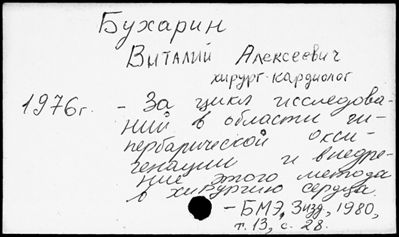 Бухарин
Виталий Алексеевич
хирург-кардиолог
1976г. - За цикл исследова-
ний в области ги-
пербарической окси-
генации и внедре-
ние этого метода
в хирургию сердца.
- БМЭ, 3изд, 1980,
т. 13, с. 28.